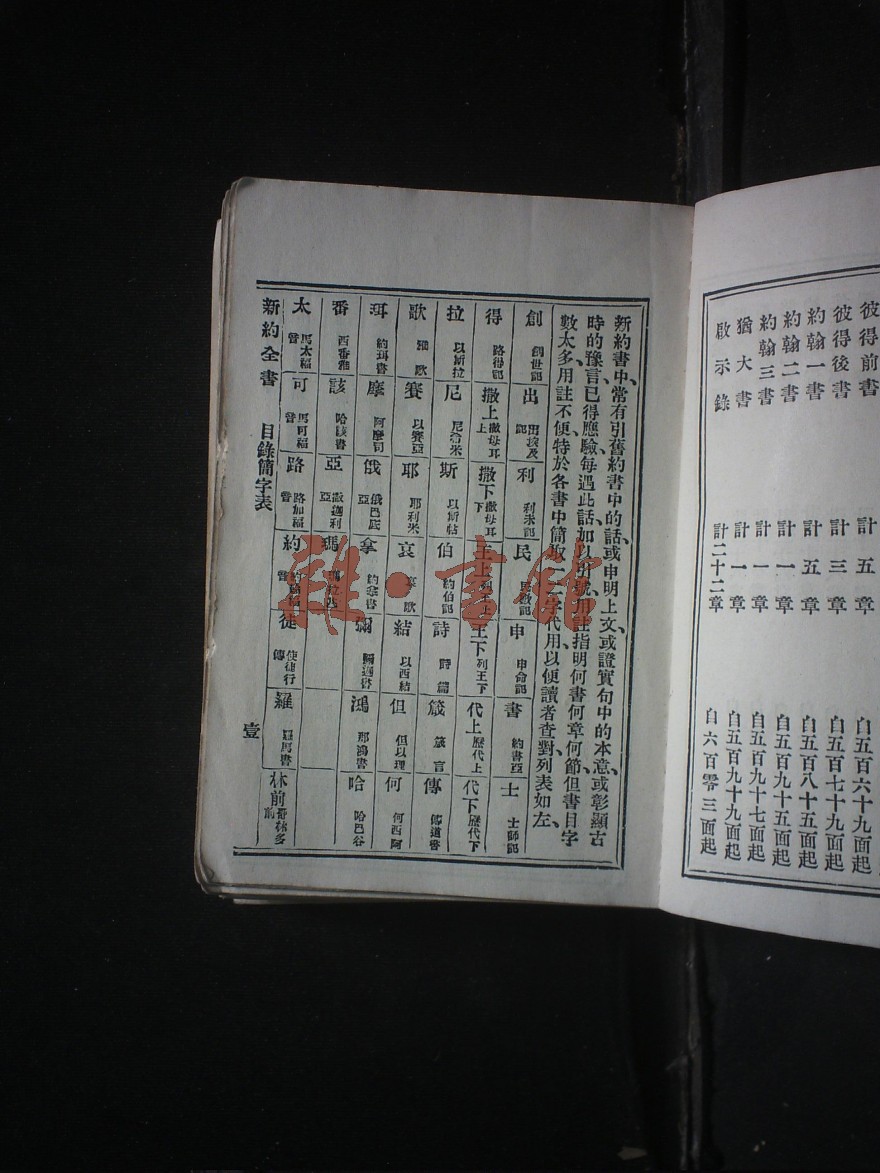 彼得前書 計五章 自五百六十九面起
彼得後書 計三章 自五百七十九面起
約翰一書 計五章 自五百八十五面起
約翰二書 計一章 自五百九十五面起
約翰三書 計一章 自五百九十七面起
猶大書 計一章 自五百九十九面起
啟示錄 計二十二章 自六百零三面起
新約書中、常有引舊約書中的話、或申明上文、或證實句中的本意、或彰顯古
時的豫言已得應驗、每遇此話、如以
號用註指明何書何章何節、但書目字
數太多、用註不便、特於各書中簡
一二字代用、以便讀者查對、列表如左、
創 創世記 出 出埃及記 利 利未記 民 民數記 申 申命記 書 約書亞 士 士師記
得 路得記 撒上 撒母耳上 撒下 撒母耳下 王上 列王上 王下 列王下 代上 歷代上 代下 歷代下
拉 以斯拉 尼 尼希米 斯 以斯帖 伯 約伯記 詩 詩篇 箴 箴言 傳 傳道書
歌 雅歌 賽 以賽亞 耶 耶利米 哀 哀歌 結 以西結 但 但以理 何 何西阿
珥 約珥書 摩 阿摩司 俄 俄巴底亞 拿 約拿書 彌 彌迦書 鴻 那鴻書 哈 哈巴谷
番 西番雅 該 哈該書 亞 撒迦利亞 瑪 瑪拉基
太 馬太福音 可 馬可福音 路 路加福音 約 約翰福音 徒 使徒行傳 羅 羅馬書 林前 哥林多前
新約全書 目錄簡字表 壹
雜·書館